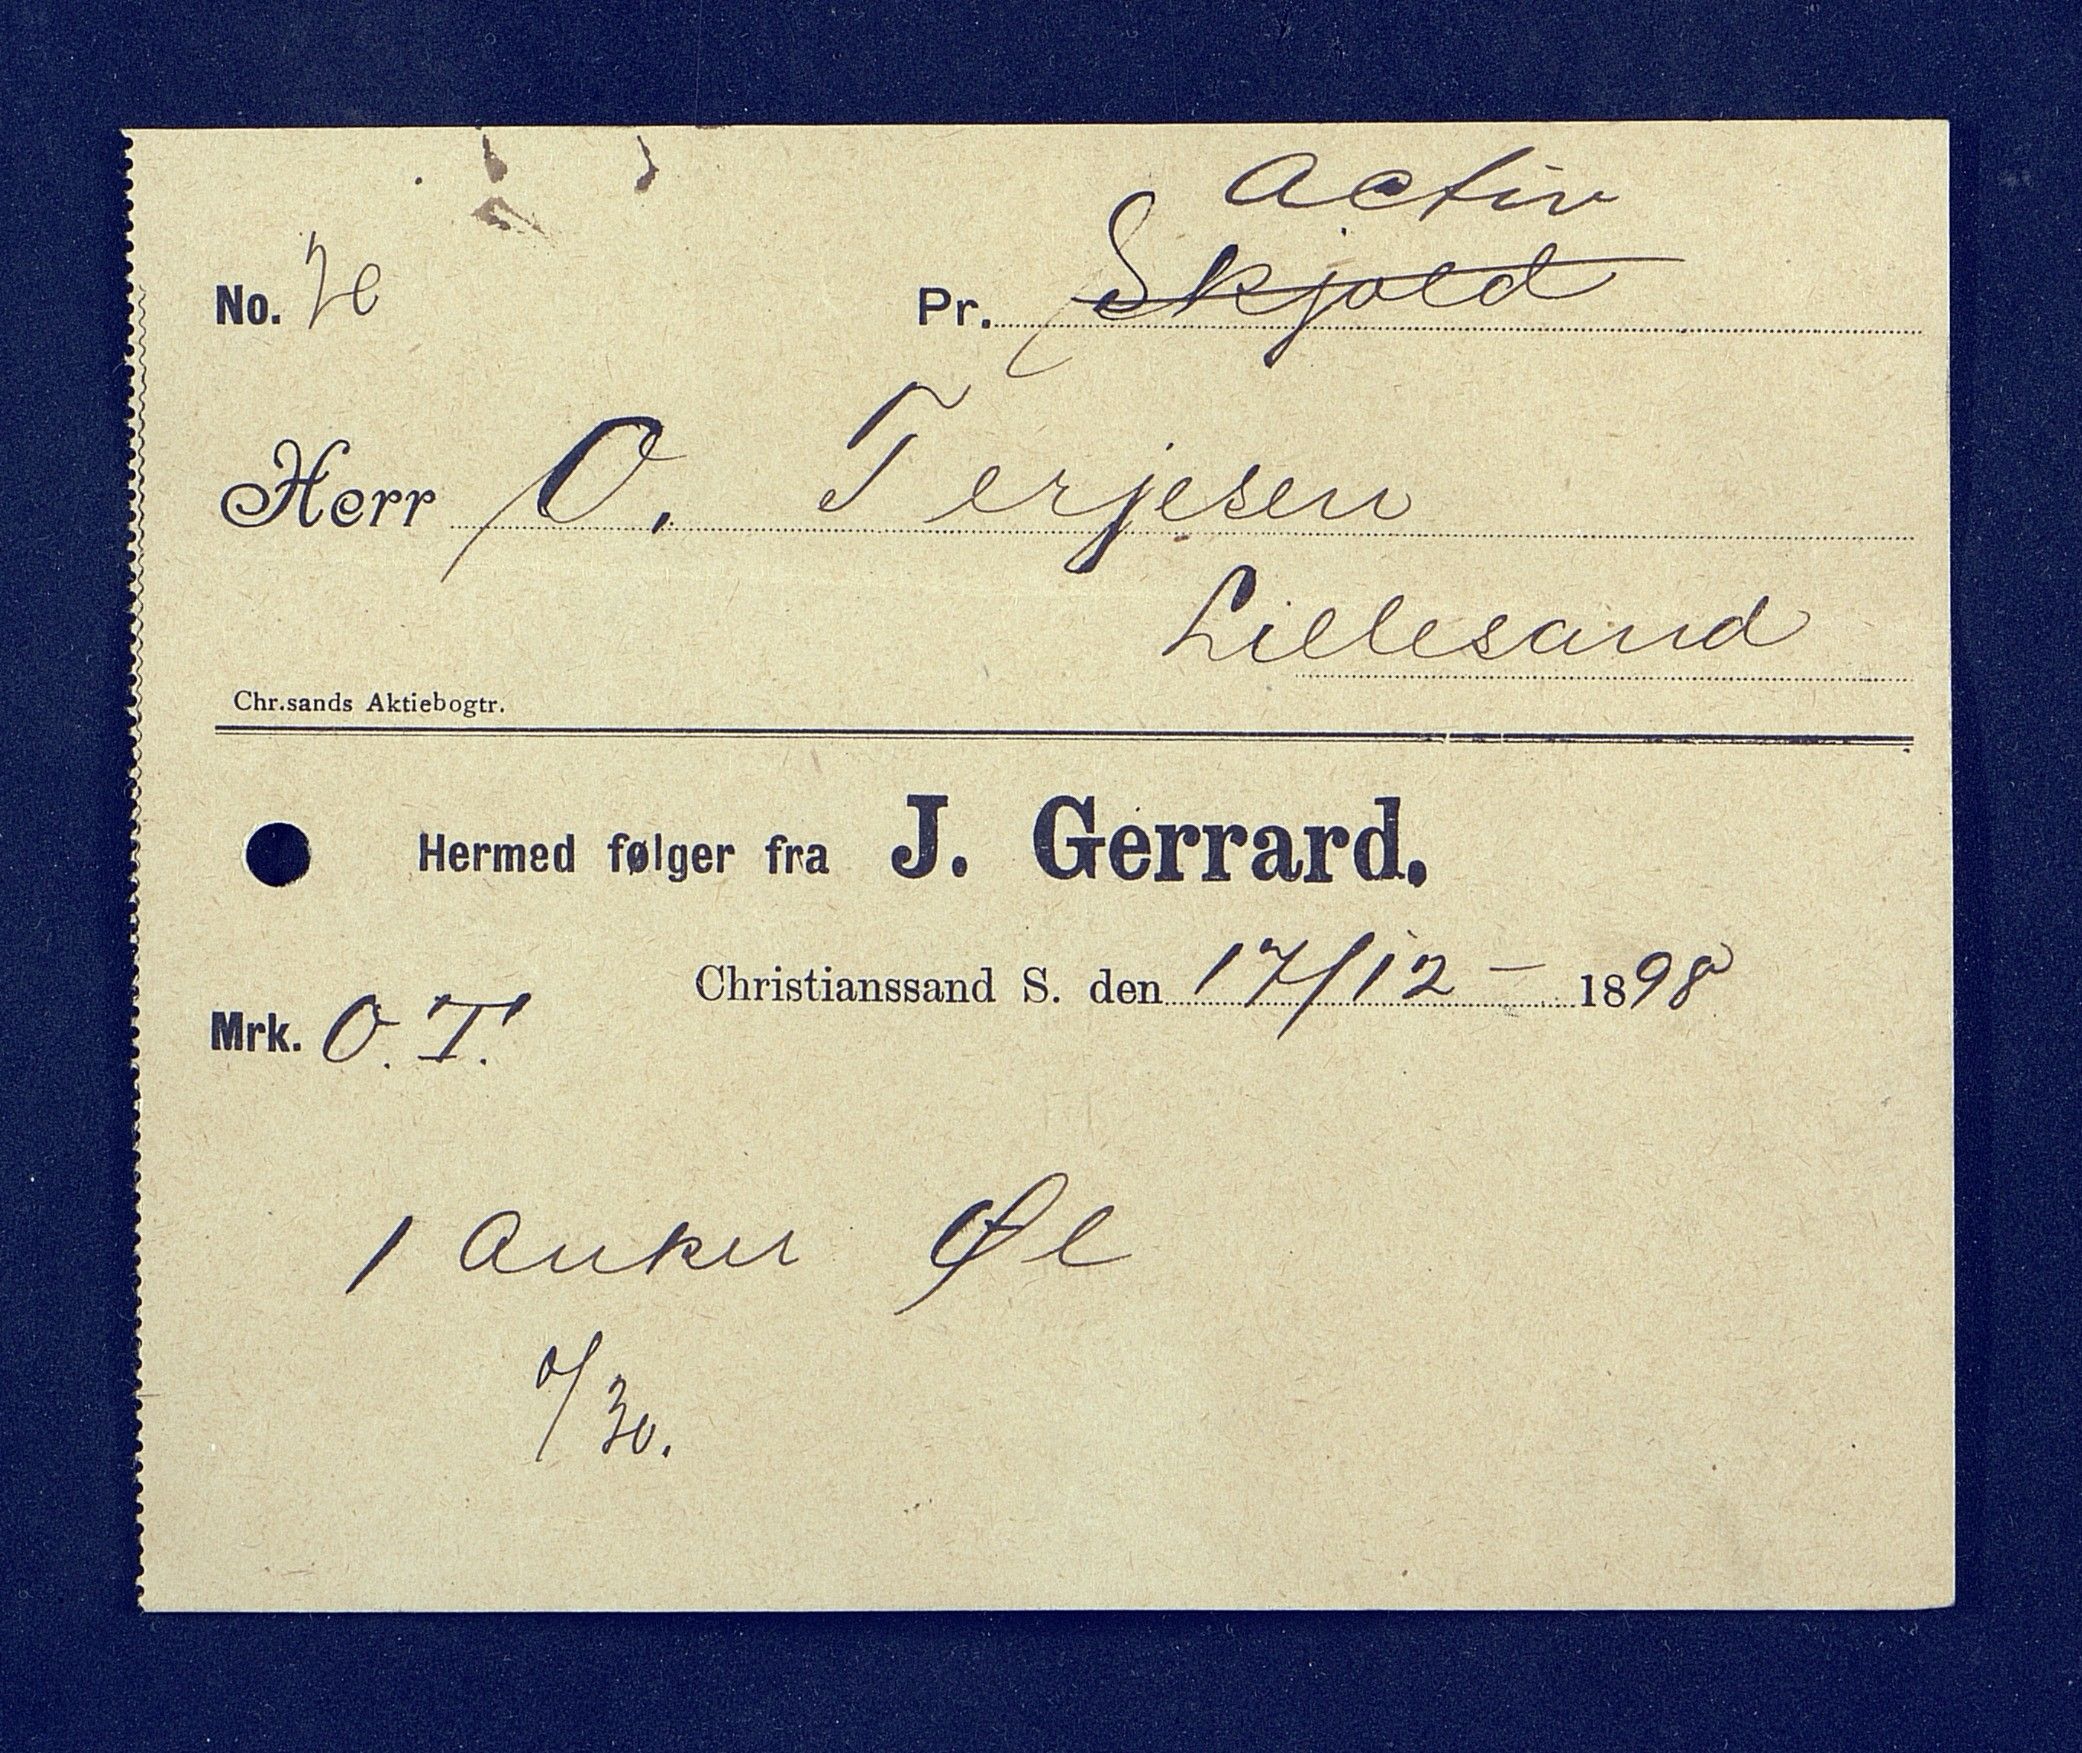 Activ
No. 70 Pr. Skjold
Herr O. Terjesen
Lillesand
Chr.sands Aktiebogtr.
Hermed følger fra J. Gerrard.
Christianssand S. den 17/12 - 1898
Mrk. O. T.
1 Anker Øl
/30.